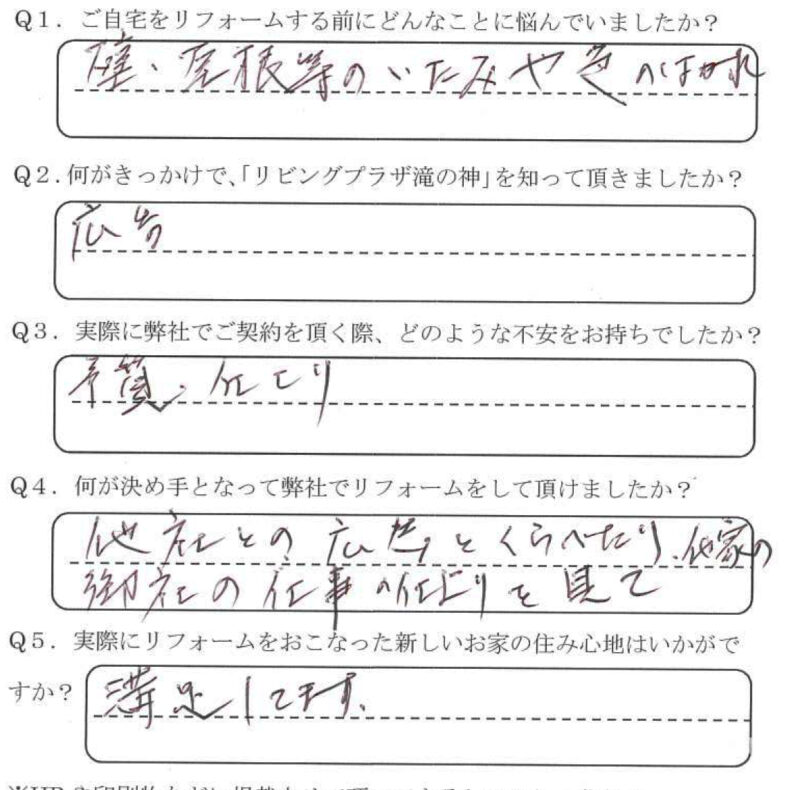 Q1. ご自宅をリフォームする前にどんなことに悩んでいましたか?
壁、屋根等のいたみや色のはがれ
Q2. 何がきっかけで、「リビングプラザ滝の神」を知って頂きましたか?
広告
Q3. 実際に弊社でご契約を頂く際、どのような不安をお持ちでしたか?
、仕上り
Q4. 何が決め手となって弊社でリフォームをして頂けましたか?
他社との広告とくらべたり、他家の
御社の仕事の仕上りを見て
Q5. 実際にリフォームをおこなった新しいお家の住み心地はいかがで
すか?
満足してます。